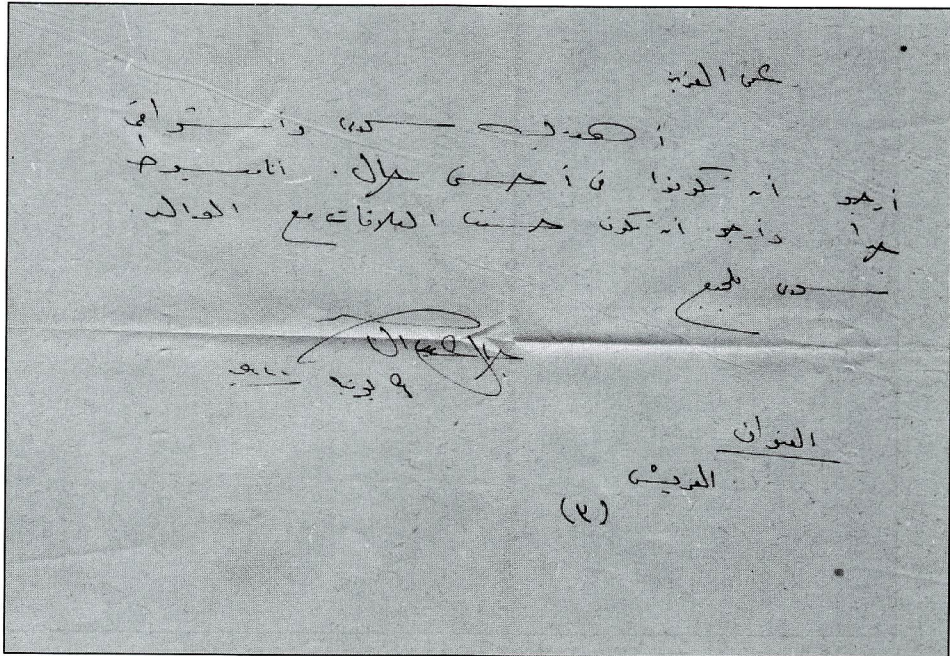 عمى العزيز
أهديك سلامى وأشواقى
أرجو أن تكونوا فى أحسن حال. أنا مبسوط
جدا وأرجو أن تكون حسنت العلاقات مع الوالد.
سلامى للجميع
٩ يونيه
العنوان
العريش
(٣)